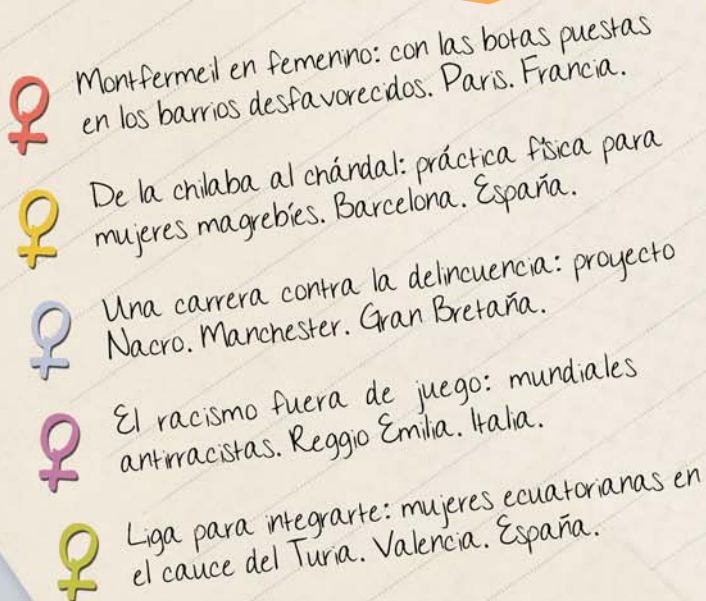 Montfermeil en femenino: con las botas puestas
en los barrios desfavorecidos. Paris. Francia.
De la chilaba al chándal: práctica física para
mujeres magrebíes. Barcelona. España.
Una carrera contra la delincuencia: proyecto
Nacro. Manchester. Gran Bretaña.
El racismo fuera de juego: mundiales
antirracistas. Reggio Emilia. Italia.
Liga para integrarte: mujeres ecuatorianas en
el cauce del Turia. Valencia. España.